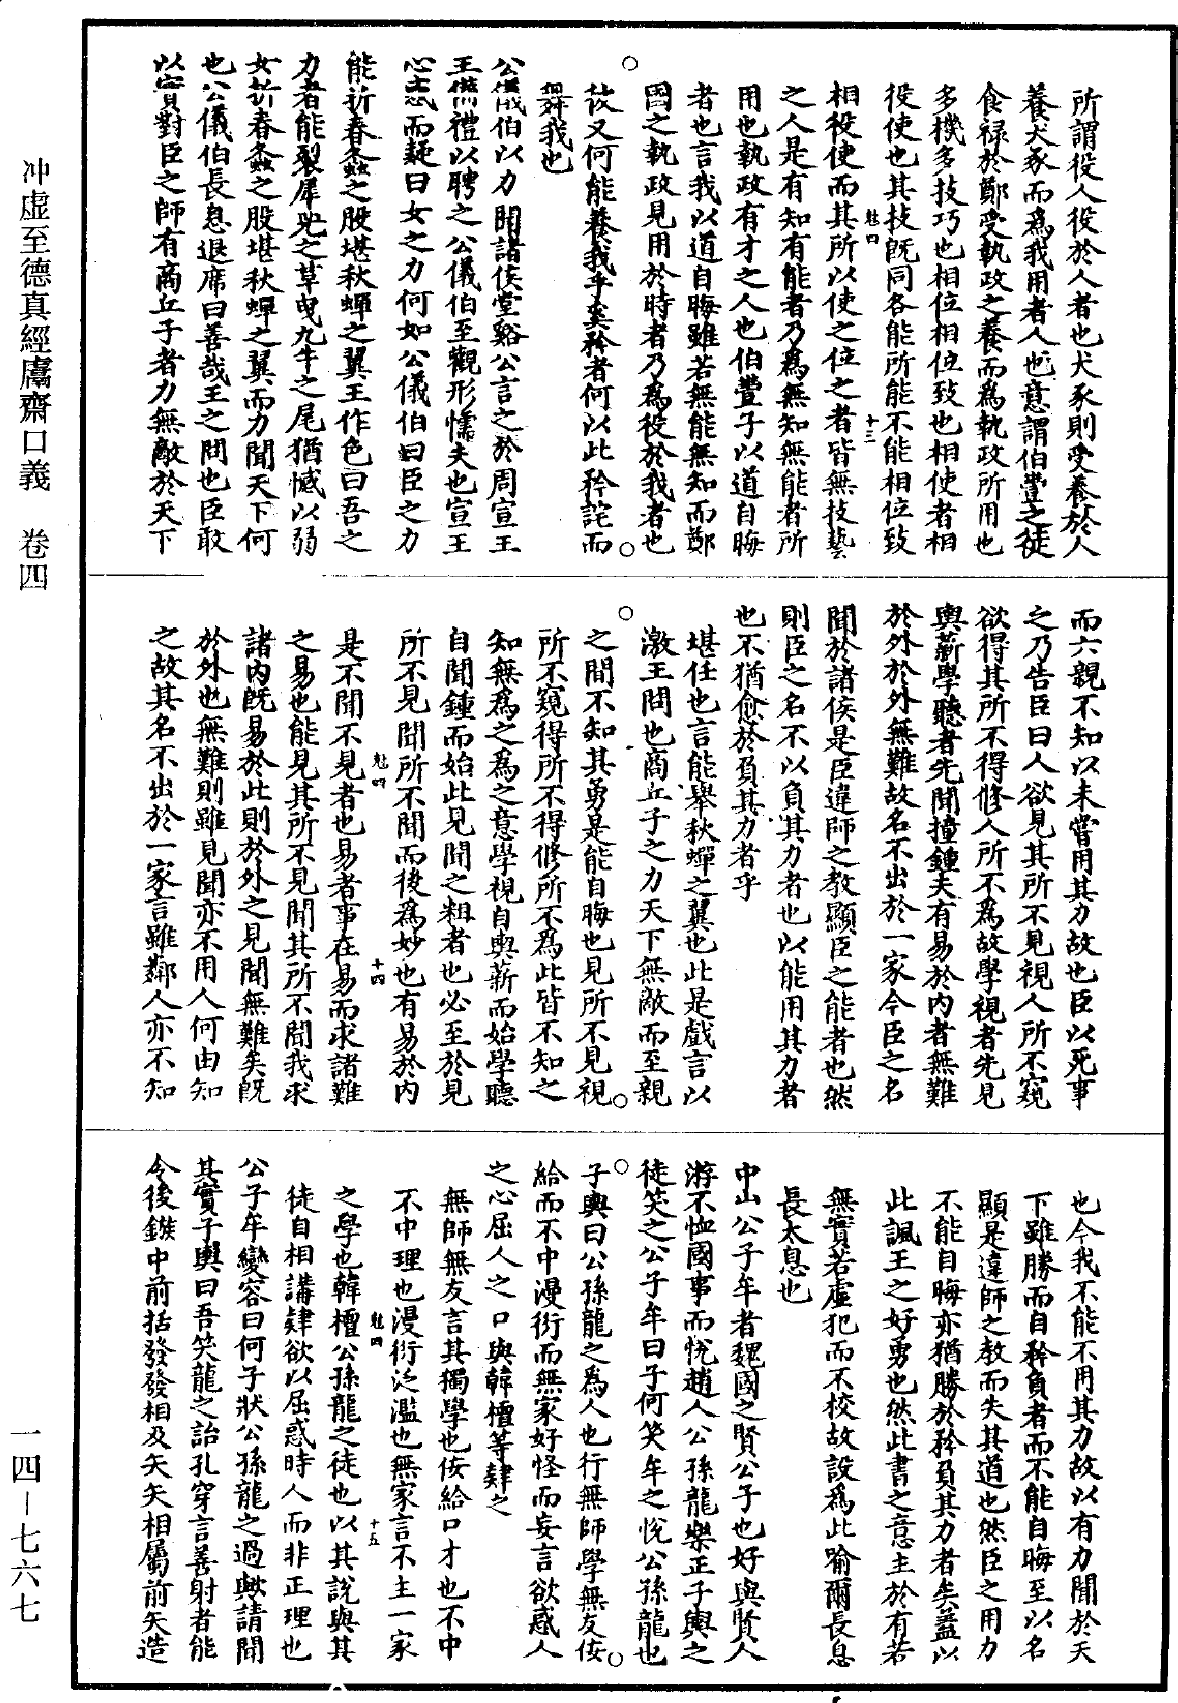 所謂役人役於人者也犬豕則受養於人
養犬豕而為我用者人也意謂伯豐之徒
食祿於鄭受執政之養而為執政所用也
多機多技巧也相位相位致也相使者相
役使也其技既同各能所能不能相位致
相役使而其所以使之位之者皆無技藝
魁四 十三
之人是有知有能者乃為無知無能者所
用也執政有才之人也伯豐子以道自晦
者也言我以道自晦雖若無能無知而鄭
國之執政見用於時者乃為役於我者也
彼又何能養我乎奚矜者何以此矜詫而
舞我也
公儀伯以力聞諸侯堂谿公言之於周宣王
王備禮以聘之公儀伯至觀形懦夫也宣王
心惑而疑曰女之力何如公儀伯曰臣之力
能折春螽之股堪秋蟬之翼王作色曰吾之
力者能裂犀兕之革曳九牛之尾猶憾以弱
女折春螽之股堪秋蟬之翼而力聞天下何
也公儀伯長息退席曰善哉王之問也臣敢
以實對臣之師有商丘子者力無敵於天下
而六親不知以未嘗用其力故也臣以死事
之乃告臣曰人欲見其所不見視人所不窺
欲得其所不得修人所不為故學視者先見
輿薪學聽者先聞撞鍾夫有易於內者無難
於外於外無難故名不出於一家今臣之名
聞於諸侯是臣違師之教顯臣之能者也然
則臣之名不以負其力者也以能用其力者
也不猶愈於負其力者乎
堪任也言能舉秋蟬之翼也此是戲言以
激王問也商丘子之力天下無敵而至親
之間不知其勇是能自晦也見所不見視
所不窺得所不得修所不為此皆不知之
知無為之為之意學視自輿薪而始學聽
自聞鍾而始此見聞之粗者也必至於見
所不見聞所不聞而後為妙也有易於內
魁四 十四
是不聞不見者也易者事在易而求諸難
之易也能見其所不見聞其所不聞我求
諸內既易於此則於外之見聞無難矣既
於外也無難則雖見聞亦不用人何由知
之故其名不出於一家言雖鄰人亦不知
也今我不能不用其力故以有力聞於天
下雖勝而自矜負者而不能自晦至以名
顯是違師之教而失其道也然臣之用力
不能自晦亦猶勝於矜負其力者矣蓋以
此諷王之好勇也然此書之意主於有若
無實若虛犯而不校故設為此喻爾長息
長太息也
中山公子牟者魏國之賢公子也好與賢人
游不恤國事而悅趙人公孫龍樂正子輿之
徒笑之公子牟曰子何笑牟之悅公孫龍也
子輿曰公孫龍之為人也行無師學無友佞
給而不中漫衍而無家好怪而妄言欲惑人
之心屈人之口與韓檀等肄之
無師無友言其獨學也佞給口才也不中
不中理也漫衍泛濫也無家言不主一家
魁四 十五
之學也韓檀公孫龍之徒也以其說與其
徒自相講肄欲以屈惑時人而非正理也
公子牟變容曰何子狀公孫龍之過歟請聞
其實子輿曰吾笑龍之詒孔穿言善射者能
令後鏃中前括發發相及矢矢相屬前矢造
冲虛至德真經鬳齋口義 卷四
一四—七六七